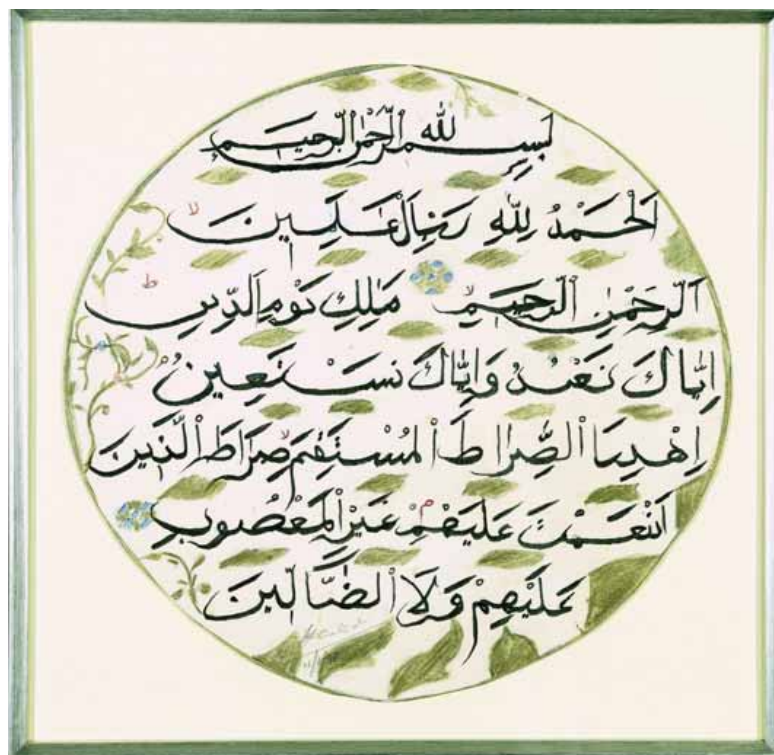 بِسْمِ اللهِ الرَّحْمٰنِ الرَّحِيْمِ
اَلْحَمْدُ لِلّٰهِ رَبِّ الْعٰلَمِيْنَ لا
الرَّحْمٰنِ الرَّحِيْمِ لا مٰلِكِ يَوْمِ الدِّيْنِ ط
اِيَّاكَ نَعْبُدُ وَاِيَّاكَ نَسْتَعِيْنُ
اِهْدِنَا الصِّرَاطَ الْمُسْتَقِيْمَ صِرَاطَ الَّذِيْنَ
اَنْعَمْتَ عَلَيْهِمْ غَيْرِ الْمَغْضُوْبِ
عَلَيْهِمْ وَلَا الضَّآلِّيْنَ